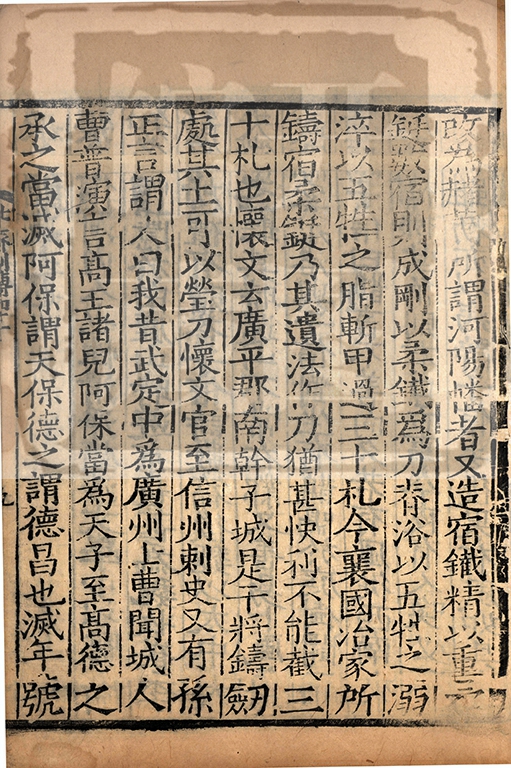 改為赭黃所謂河陽幡者又造宿鐵精以重柔
鋌數宿則成剛以柔鐵為刀脊浴以五牲之溺
淬以五牲之脂斬甲過三十札今襄國冶家所
鑄宿柔鋌乃其遺法作刀猶甚快利不能截三
十札也懷文云廣平郡南幹子城是干將鑄劒
處其土可以瑩刀懷文官至信州刺史又有孫
正言謂人曰我昔武定中為廣州士曹聞城人
曹普演言髙王諸兒阿保當為天子至髙德之
承之當滅阿保謂天保德之謂德昌也滅年號